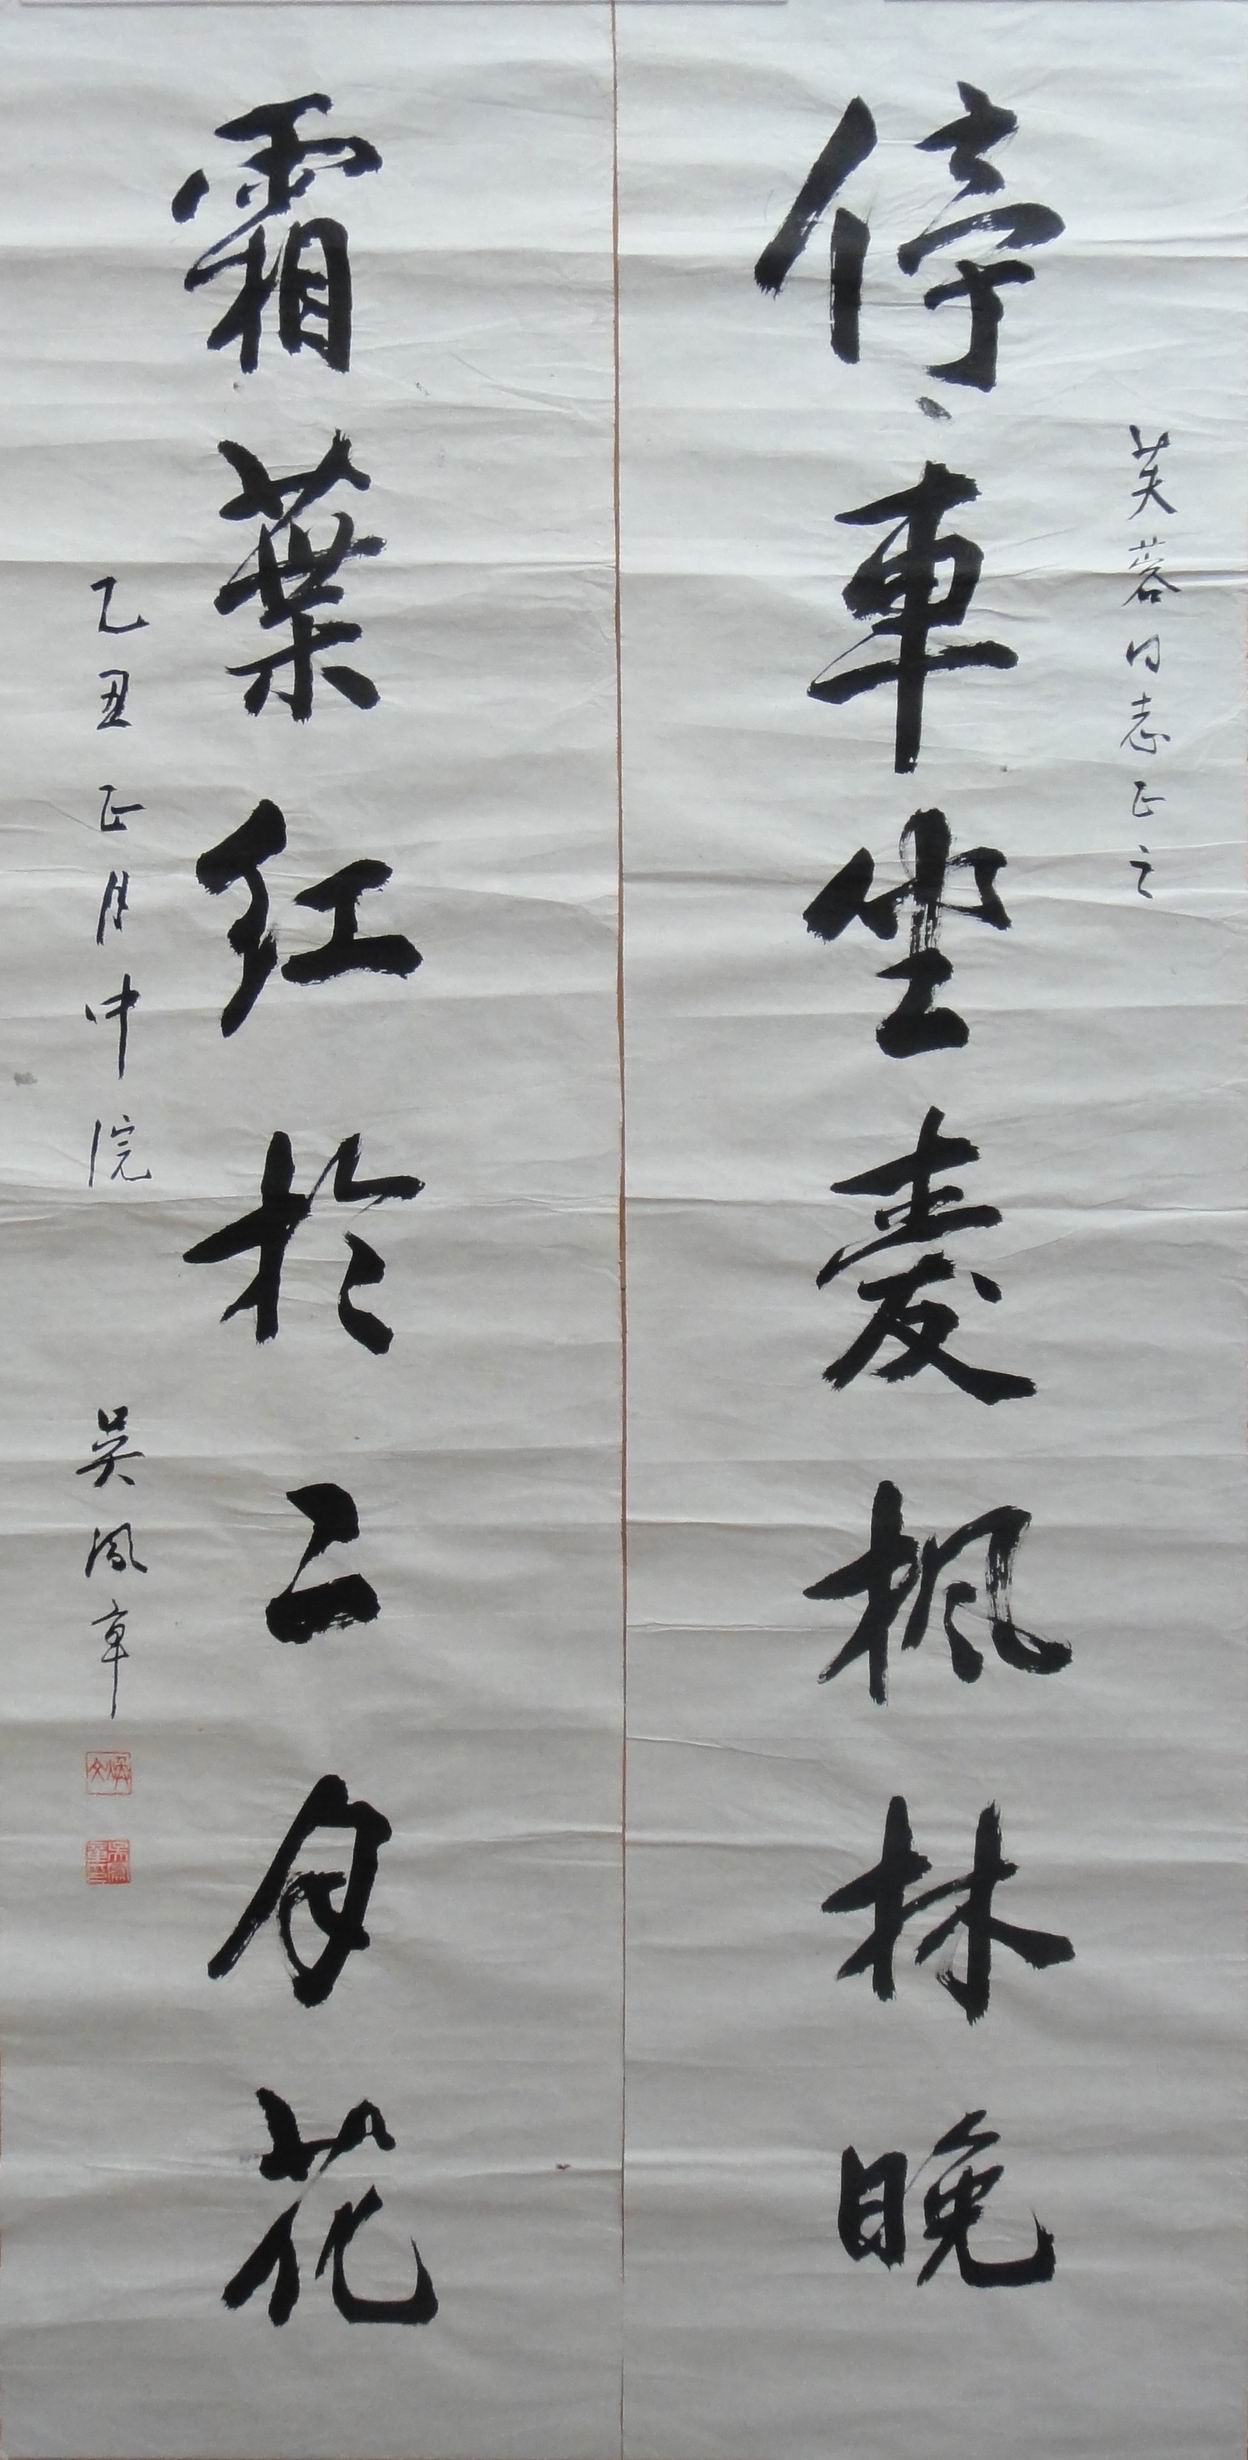 芙蓉同志正之
停車坐愛楓林晚
霜葉紅於二月花
乙丑正月中院
吳鳳章